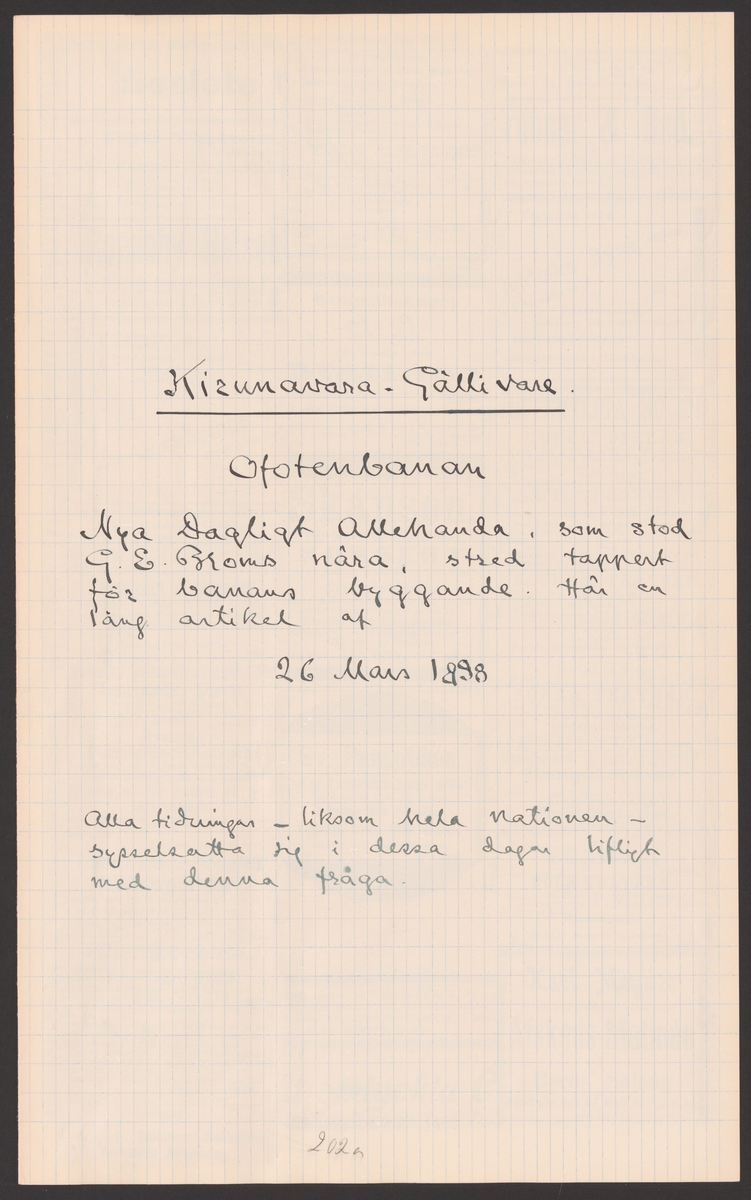 Kirunavara - Gällivare.
Ofotenbanan
Nya Dagligt Allehanda, som stod
G. E. Broms nära, stred tappert
för banans byggande. Här en
lång artikel af
26 Mars 1898
Alla tidningar – liksom hela nationen –
sysselsatta sig i dessa dagar lifligt
med denna fråga.
202a